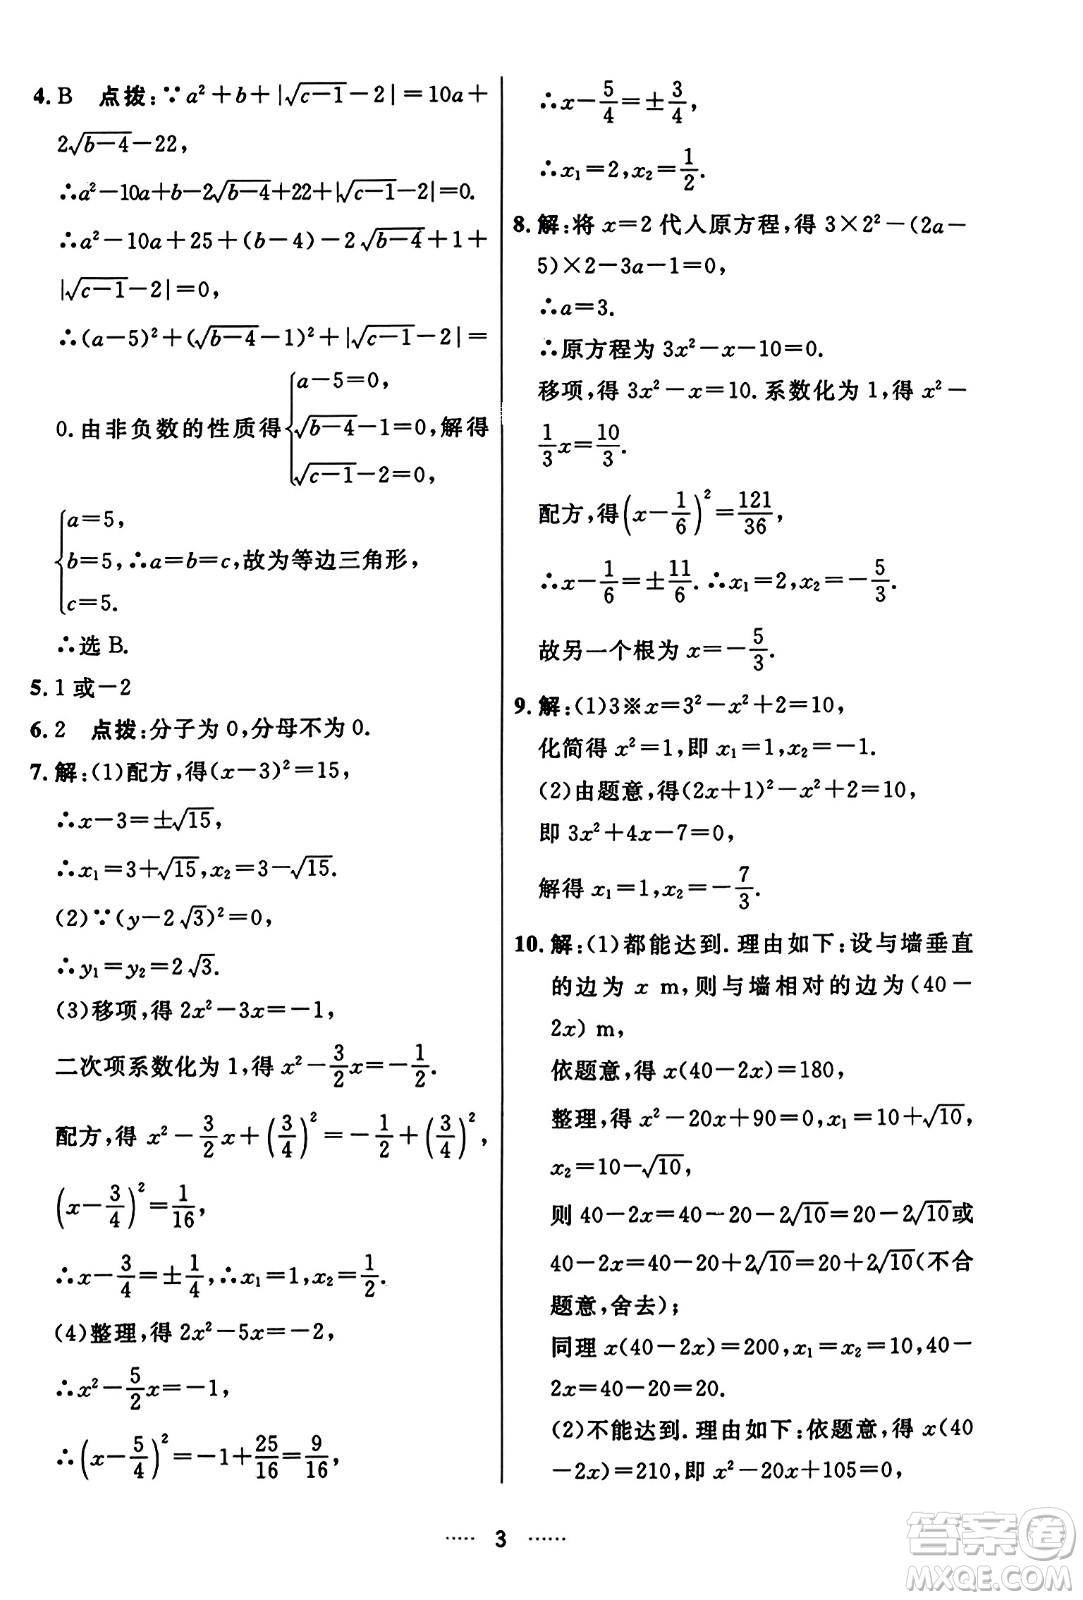 4. B 点拨:∵a²+b+|√(c-1)-2|=10a+
2√(b-4)-22,
∴a²-10a+b-2√(b-4)+22+|√(c-1)-2|=0.
∴a²-10a+25+(b-4)-2√(b-4)+1+
|√(c-1)-2|=0,
∴(a-5)²+(√(b-4)-1)²+|√(c-1)-2|=
0.由非负数的性质得{a-5=0, √(b-4)-1=0, √(c-1)-2=0, 解得
{a=5, b=5, c=5. ∴a=b=c,故为等边三角形,
∴选 B.
5. 1 或-2
6. 2 点拨:分子为 0,分母不为 0.
7. 解:(1)配方,得(x-3)²=15,
∴x-3=±√15,
∴x₁=3+√15,x₂=3-√15.
(2)∵(y-2√3)²=0,
∴y₁=y₂=2√3.
(3)移项,得 2x²-3x=-1,
二次项系数化为 1,得 x²-3/2x=-1/2.
配方,得 x²-3/2x+(3/4)²=-1/2+(3/4)²,
(x-3/4)²=1/16,
∴x-3/4=±1/4,∴x₁=1,x₂=1/2.
(4)整理,得 2x²-5x=-2,
∴x²-5/2x=-1,
∴(x-5/4)²=-1+25/16=9/16,
∴x-5/4=±3/4,
∴x₁=2,x₂=1/2.
8. 解:将 x=2 代人原方程,得 3×2²-(2a-
5)×2-3a-1=0,
∴a=3.
∴原方程为 3x²-x-10=0.
移项,得 3x²-x=10.系数化为 1,得 x²-
1/3x=10/3.
配方,得(x-1/6)²=121/36,
∴x-1/6=±11/6.∴x₁=2,x₂=-5/3.
故另一个根为 x=-5/3.
9. 解:(1)3※x=3²-x²+2=10,
化简得 x²=1,即 x₁=1,x₂=-1.
(2)由题意,得(2x+1)²-x²+2=10,
即 3x²+4x-7=0,
解得 x₁=1,x₂=-7/3.
10. 解:(1)都能达到.理由如下:设与墙垂直
的边为 x m,则与墙相对的边为(40-
2x) m,
依题意,得 x(40-2x)=180,
整理,得 x²-20x+90=0,x₁=10+√10,
x₂=10-√10,
则 40-2x=40-20-2√10=20-2√10或
40-2x=40-20+2√10=20+2√10(不合
题意,舍去);
同理 x(40-2x)=200,x₁=x₂=10,40-
2x=40-20=20.
(2)不能达到.理由如下:依题意,得 x(40
-2x)=210,即 x²-20x+105=0,
······ 3 ······
答案圈
MXQE.COM